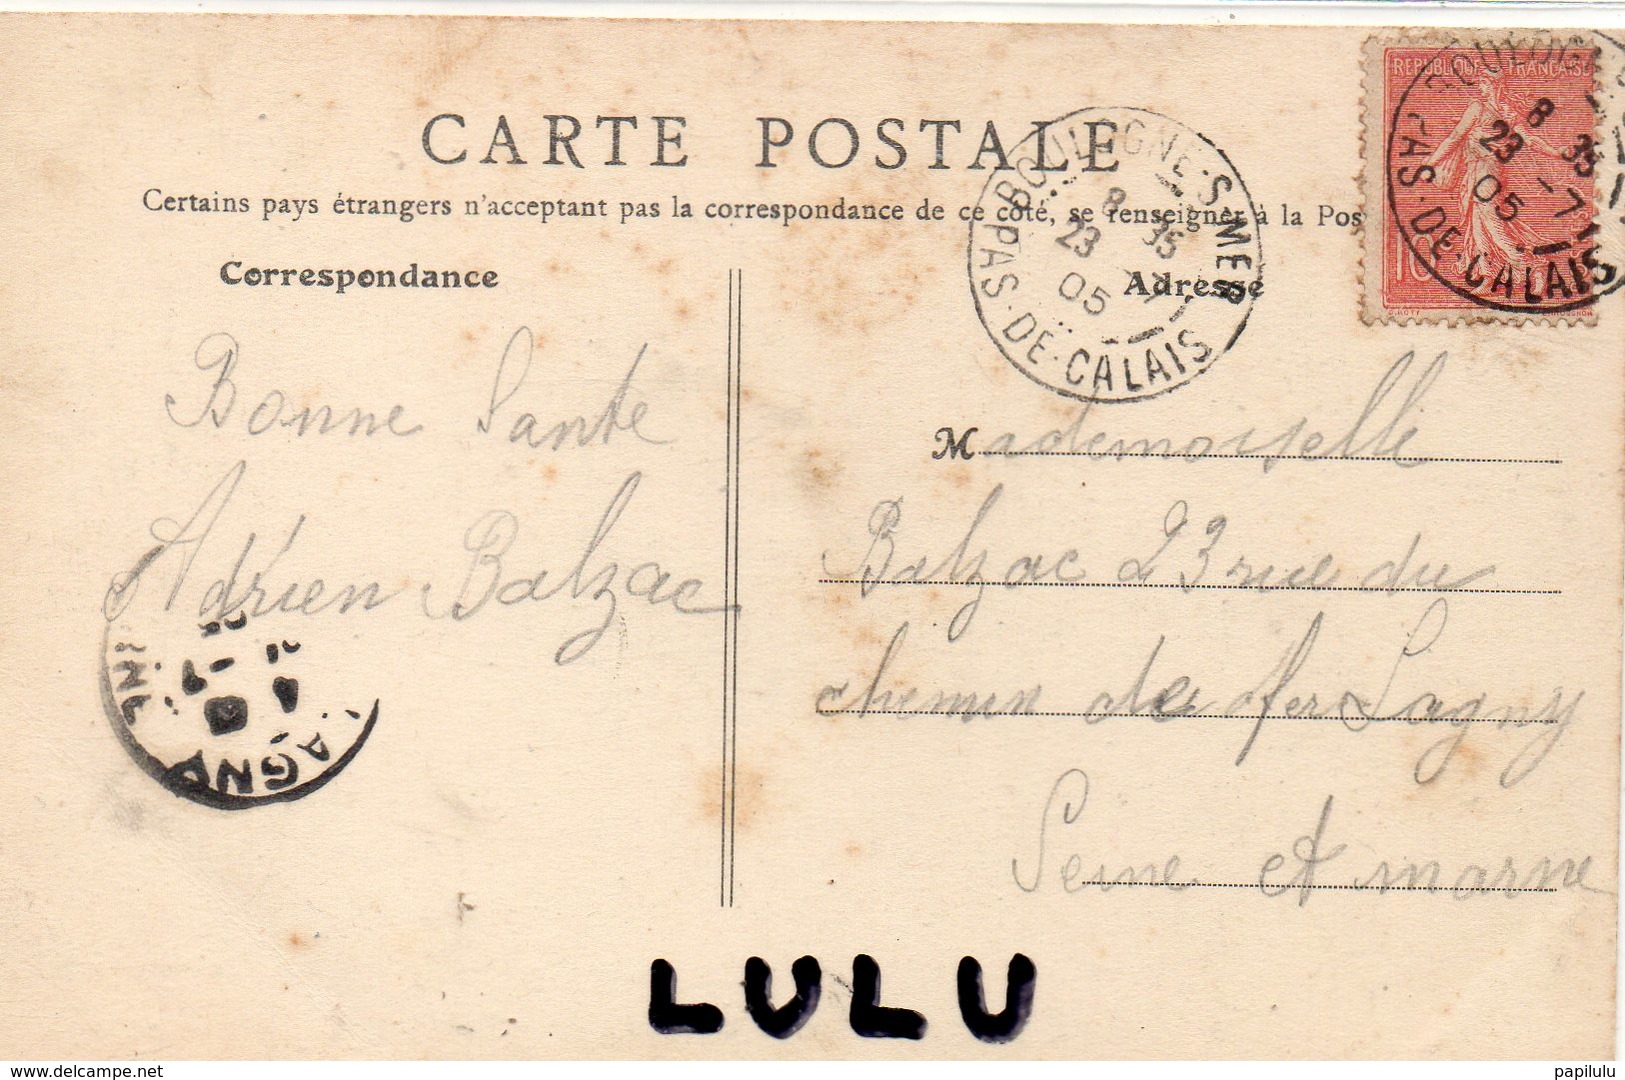 CARTE POSTALE
Certains pays étrangers n'acceptant pas la correspondance de ce côté, se renseigner à la Pos
Correspondance
Adresse
REPUBLIQUE FRANÇAISE
10
O.ROTY
BOULOGNE-S-MER
8 35
23 -7
05
PAS-DE-CALAIS
BOULOGNE-S-MER
8 35
23 -7
05
PAS-DE-CALAIS
Bonne Sante
Adrien Balzac
Mademoiselle
Balzac 23 rue du
chemin de fer Lagny
Seine et marne
LAGNY
LULU
www.delcampe.net
papilulu